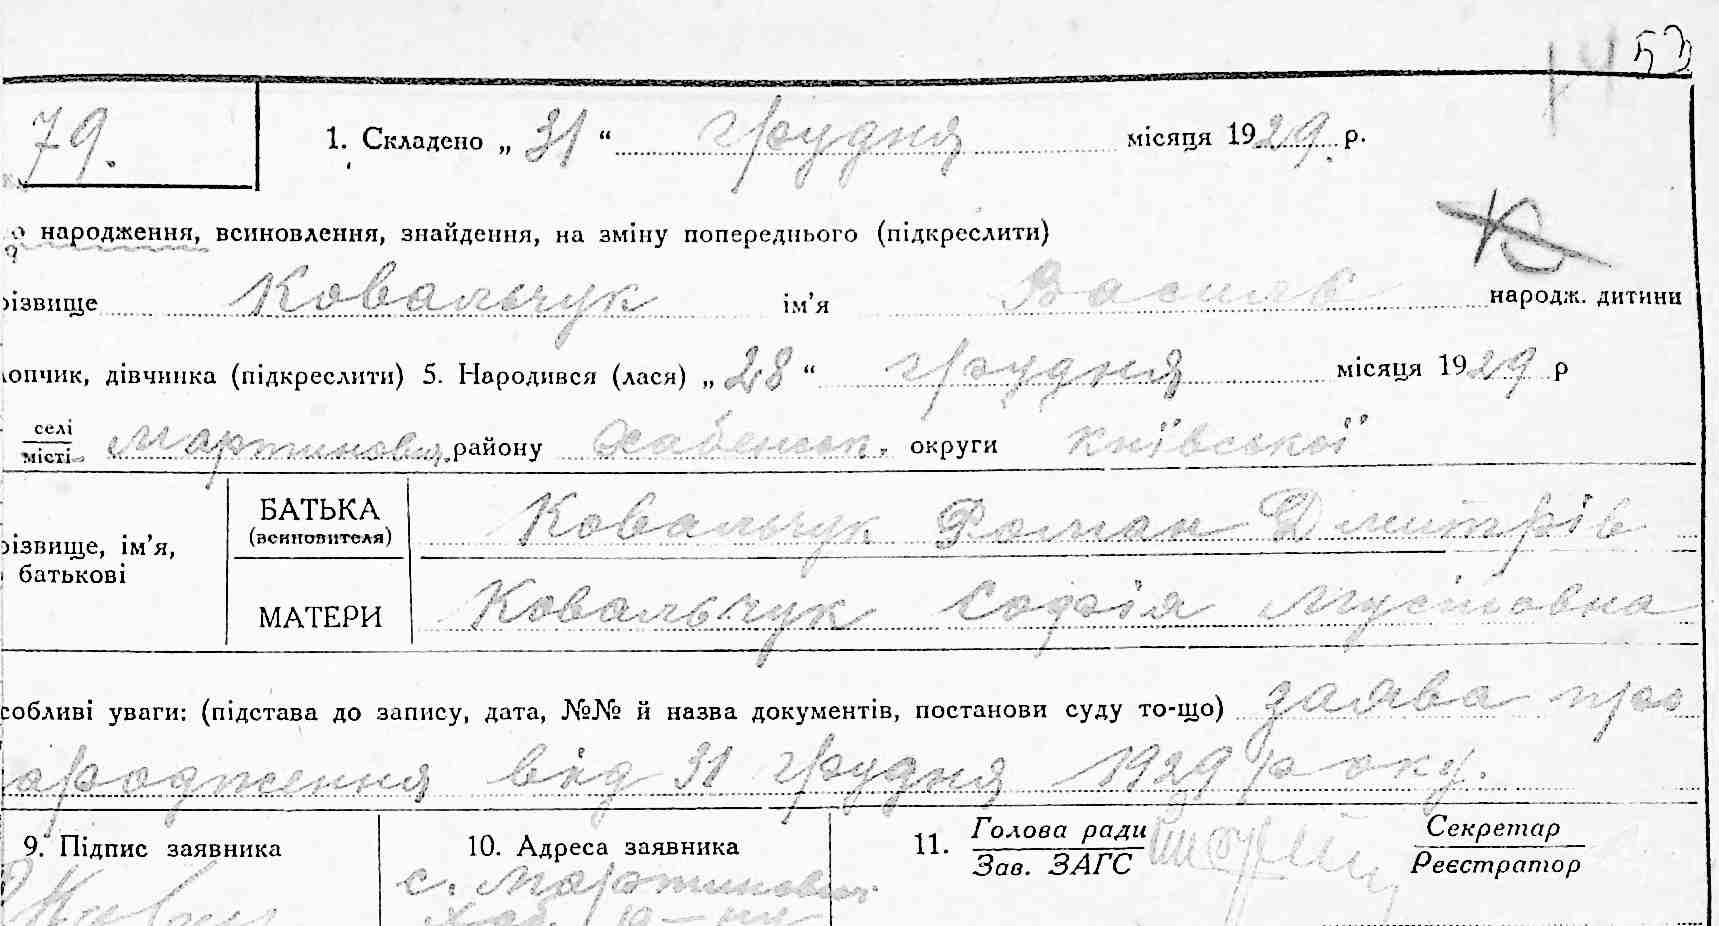 53
79.
1. Складено „ 31 “ грудня місяця 1929. р.
народження, всиновлення, знайдення, на зміну попереднього (підкреслити)
різвище Ковальчук ім’я Василь народж. дитини
лопчик, дівчинка (підкреслити) 5. Народився (лася) „ 28 “ грудня місяця 1929 р
селі
місті Мартинович. району Хабенськ. округи Київської
БАТЬКА
(всиновителя) Ковальчук Роман Дмитрів
різвище, ім’я,
батькові
МАТЕРИ Ковальчук Софія
собливі уваги: (підстава до запису, дата, №№ й назва документів, постанови суду то-що) заява про
ародження від 31 грудня 1929 року.
9. Підпис заявника 10. Адреса заявника 11. Голова ради Секретар
Зав. ЗАГС Реєстратор
с. Мартинович.
Хаб. р-ну